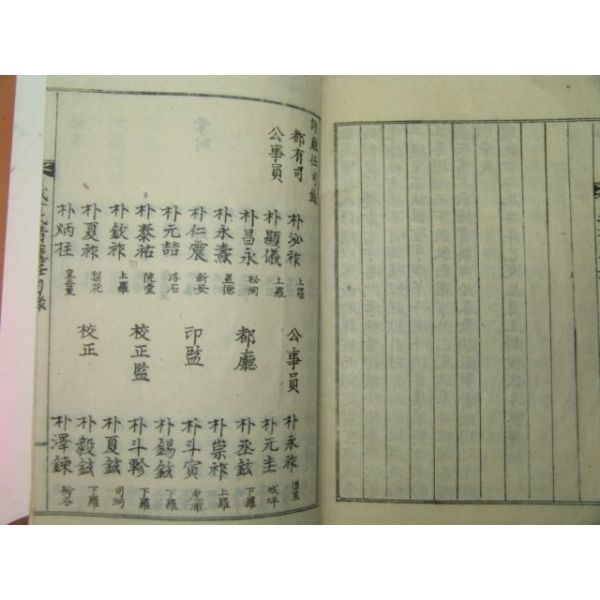 譜廳任司錄
都有司
朴泌祚 上羅
公事員
朴顯儀 上羅
朴昌永 松洞
朴永燾
朴仁震 新安
朴元喆 落石
朴泰祐 陵堂
朴欽祚 上羅
朴夏祚 梨花
朴炳柱
公事員
朴永祚
朴元圭 城坪
都廳
朴丞鉉 下羅
朴崇祚 上羅
印監
朴斗寅
朴錫鉉 下羅
校正監
朴斗軫 下羅
朴夏鉉 司洞
校正
朴毅鉉 下羅
朴澤鍊